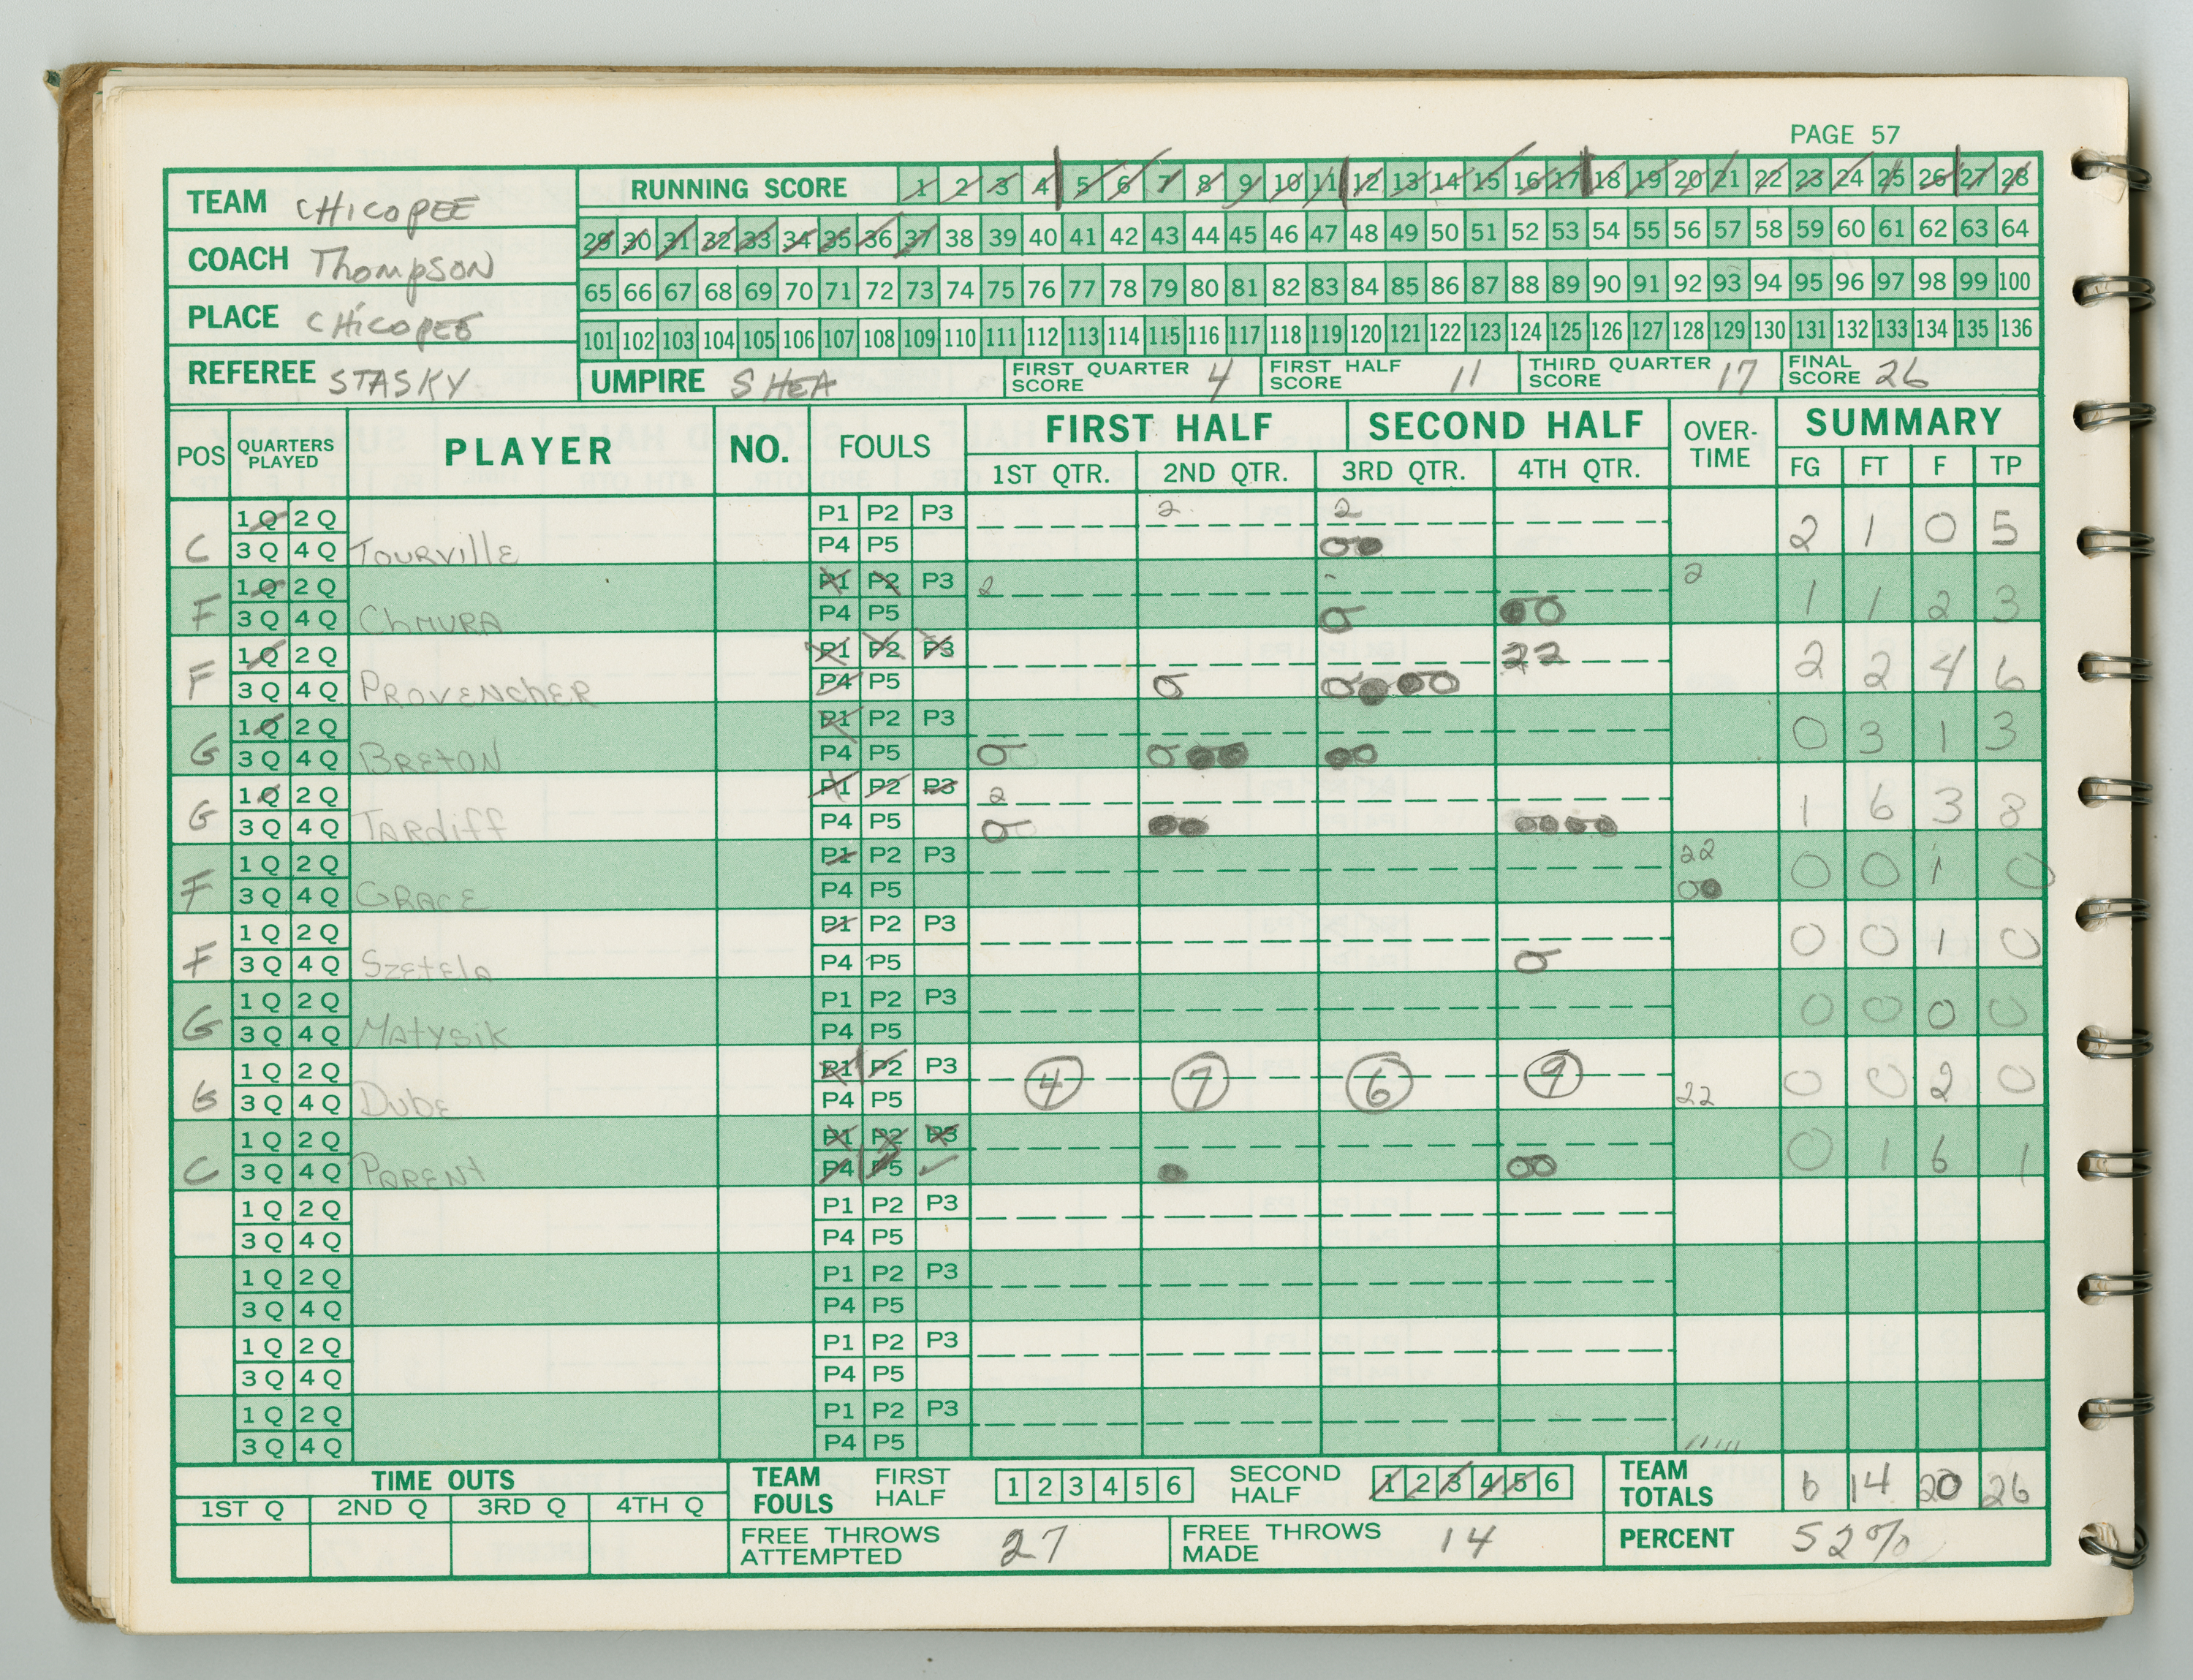 PAGE 57
TEAM CHICOPEE
COACH Thompson
PLACE CHICOPEE
REFEREE STASKY
RUNNING SCORE 1 2 3 4 5 6 7 8 9 10 11 12 13 14 15 16 17 18 19 20 21 22 23 24 25 26 27 28
29 30 31 32 33 34 35 36 37 38 39 40 41 42 43 44 45 46 47 48 49 50 51 52 53 54 55 56 57 58 59 60 61 62 63 64
65 66 67 68 69 70 71 72 73 74 75 76 77 78 79 80 81 82 83 84 85 86 87 88 89 90 91 92 93 94 95 96 97 98 99 100
101 102 103 104 105 106 107 108 109 110 111 112 113 114 115 116 117 118 119 120 121 122 123 124 125 126 127 128 129 130 131 132 133 134 135 136
UMPIRE SHEA FIRST QUARTER SCORE 4 FIRST HALF SCORE 11 THIRD QUARTER SCORE 17 FINAL SCORE 26
POS QUARTERS PLAYED PLAYER NO. FOULS FIRST HALF SECOND HALF OVER-TIME SUMMARY
1ST QTR. 2ND QTR. 3RD QTR. 4TH QTR. FG FT F TP
1 Q 2 Q P1 P2 P3 2 2
C 3 Q 4 Q TOURVILLE P4 P5 2 1 0 5
1 Q 2 Q P1 P2 P3 2 2
F 3 Q 4 Q CHMURA P4 P5 1 1 2 3
1 Q 2 Q P1 P2 P3 22
F 3 Q 4 Q PROVENCHER P4 P5 2 2 4 6
1 Q 2 Q P1 P2 P3
G 3 Q 4 Q BRETON P4 P5 0 3 1 3
1 Q 2 Q P1 P2 P3 2
G 3 Q 4 Q TARDIFF P4 P5 1 6 3 8
1 Q 2 Q P1 P2 P3 22
F 3 Q 4 Q GRACE P4 P5 0 0 1 0
1 Q 2 Q P1 P2 P3
F 3 Q 4 Q SZETELA P4 P5 0 0 1 0
1 Q 2 Q P1 P2 P3
G 3 Q 4 Q MATYSIK P4 P5 0 0 0 0
1 Q 2 Q P1 P2 P3 4 7 6 9
G 3 Q 4 Q DUBE P4 P5 22 0 0 2 0
1 Q 2 Q P1 P2 P3
C 3 Q 4 Q PARENT P4 P5 0 1 6 1
1 Q 2 Q P1 P2 P3
3 Q 4 Q P4 P5
1 Q 2 Q P1 P2 P3
3 Q 4 Q P4 P5
1 Q 2 Q P1 P2 P3
3 Q 4 Q P4 P5
1 Q 2 Q P1 P2 P3
3 Q 4 Q P4 P5
TIME OUTS
1ST Q 2ND Q 3RD Q 4TH Q
TEAM FOULS FIRST HALF 1 2 3 4 5 6 SECOND HALF 1 2 3 4 5 6 TEAM TOTALS 6 14 20 26
FREE THROWS ATTEMPTED 27 FREE THROWS MADE 14 PERCENT 52%